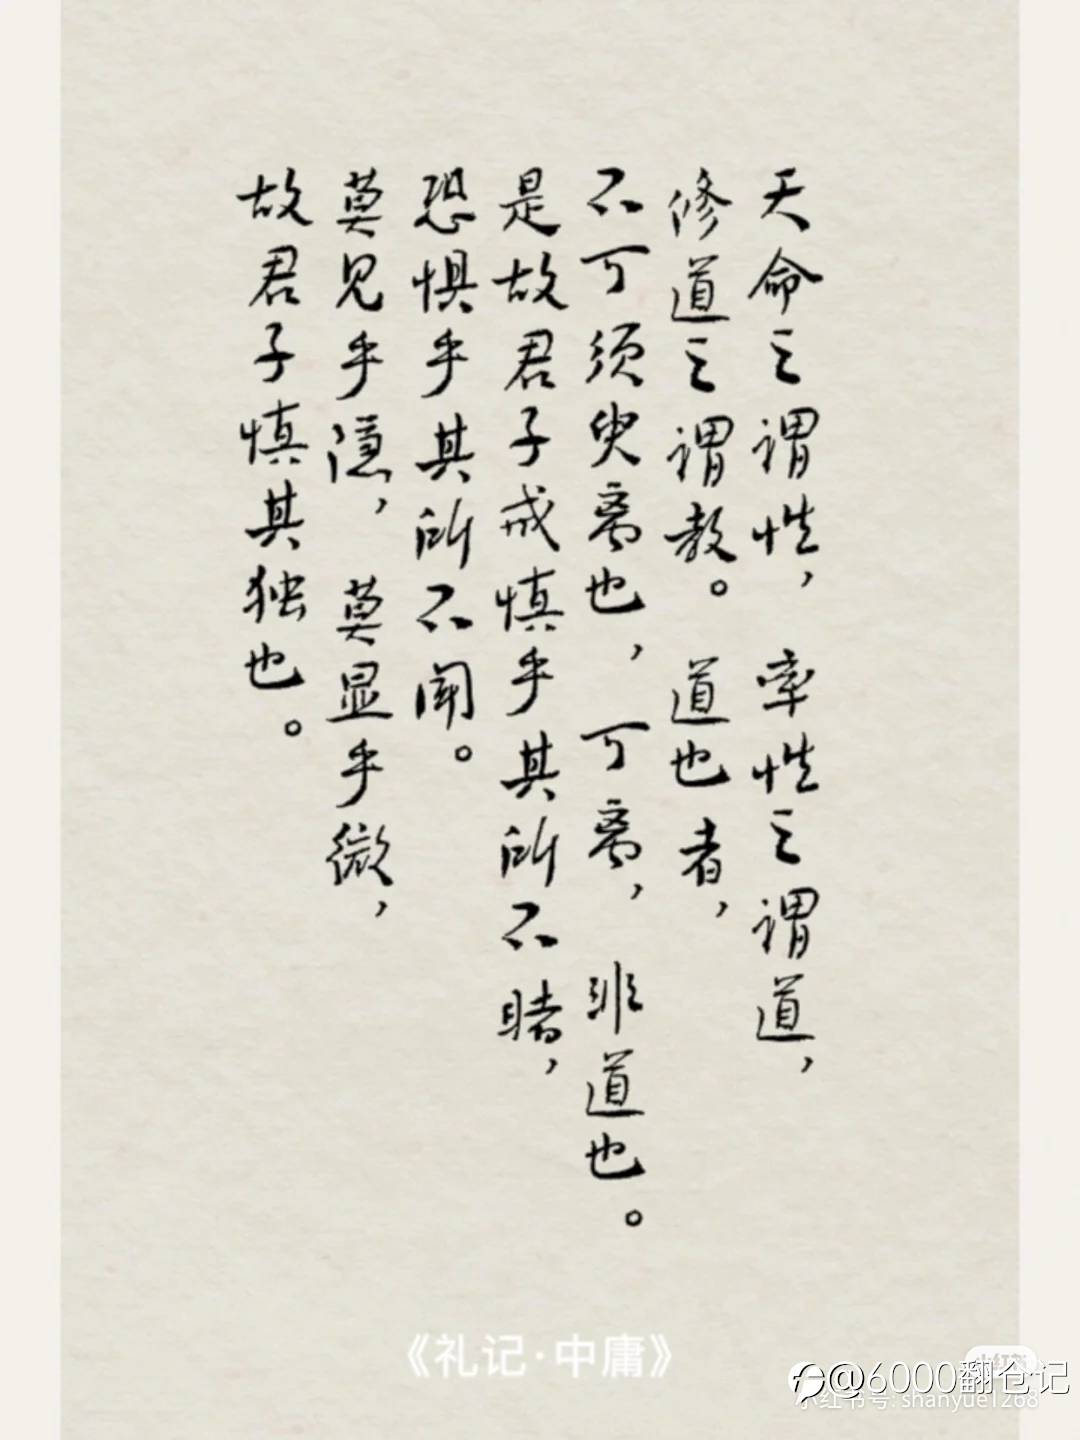 天命之谓性，率性之谓道，
修道之谓教。道也者，
不可须臾离也，可离，非道也。
是故君子戒慎乎其所不睹，
恐惧乎其所不闻。
莫见乎隐，莫显乎微，
故君子慎其独也。
《礼记·中庸》
小红书
@6000翻仓记
小红书号: shanyue1268